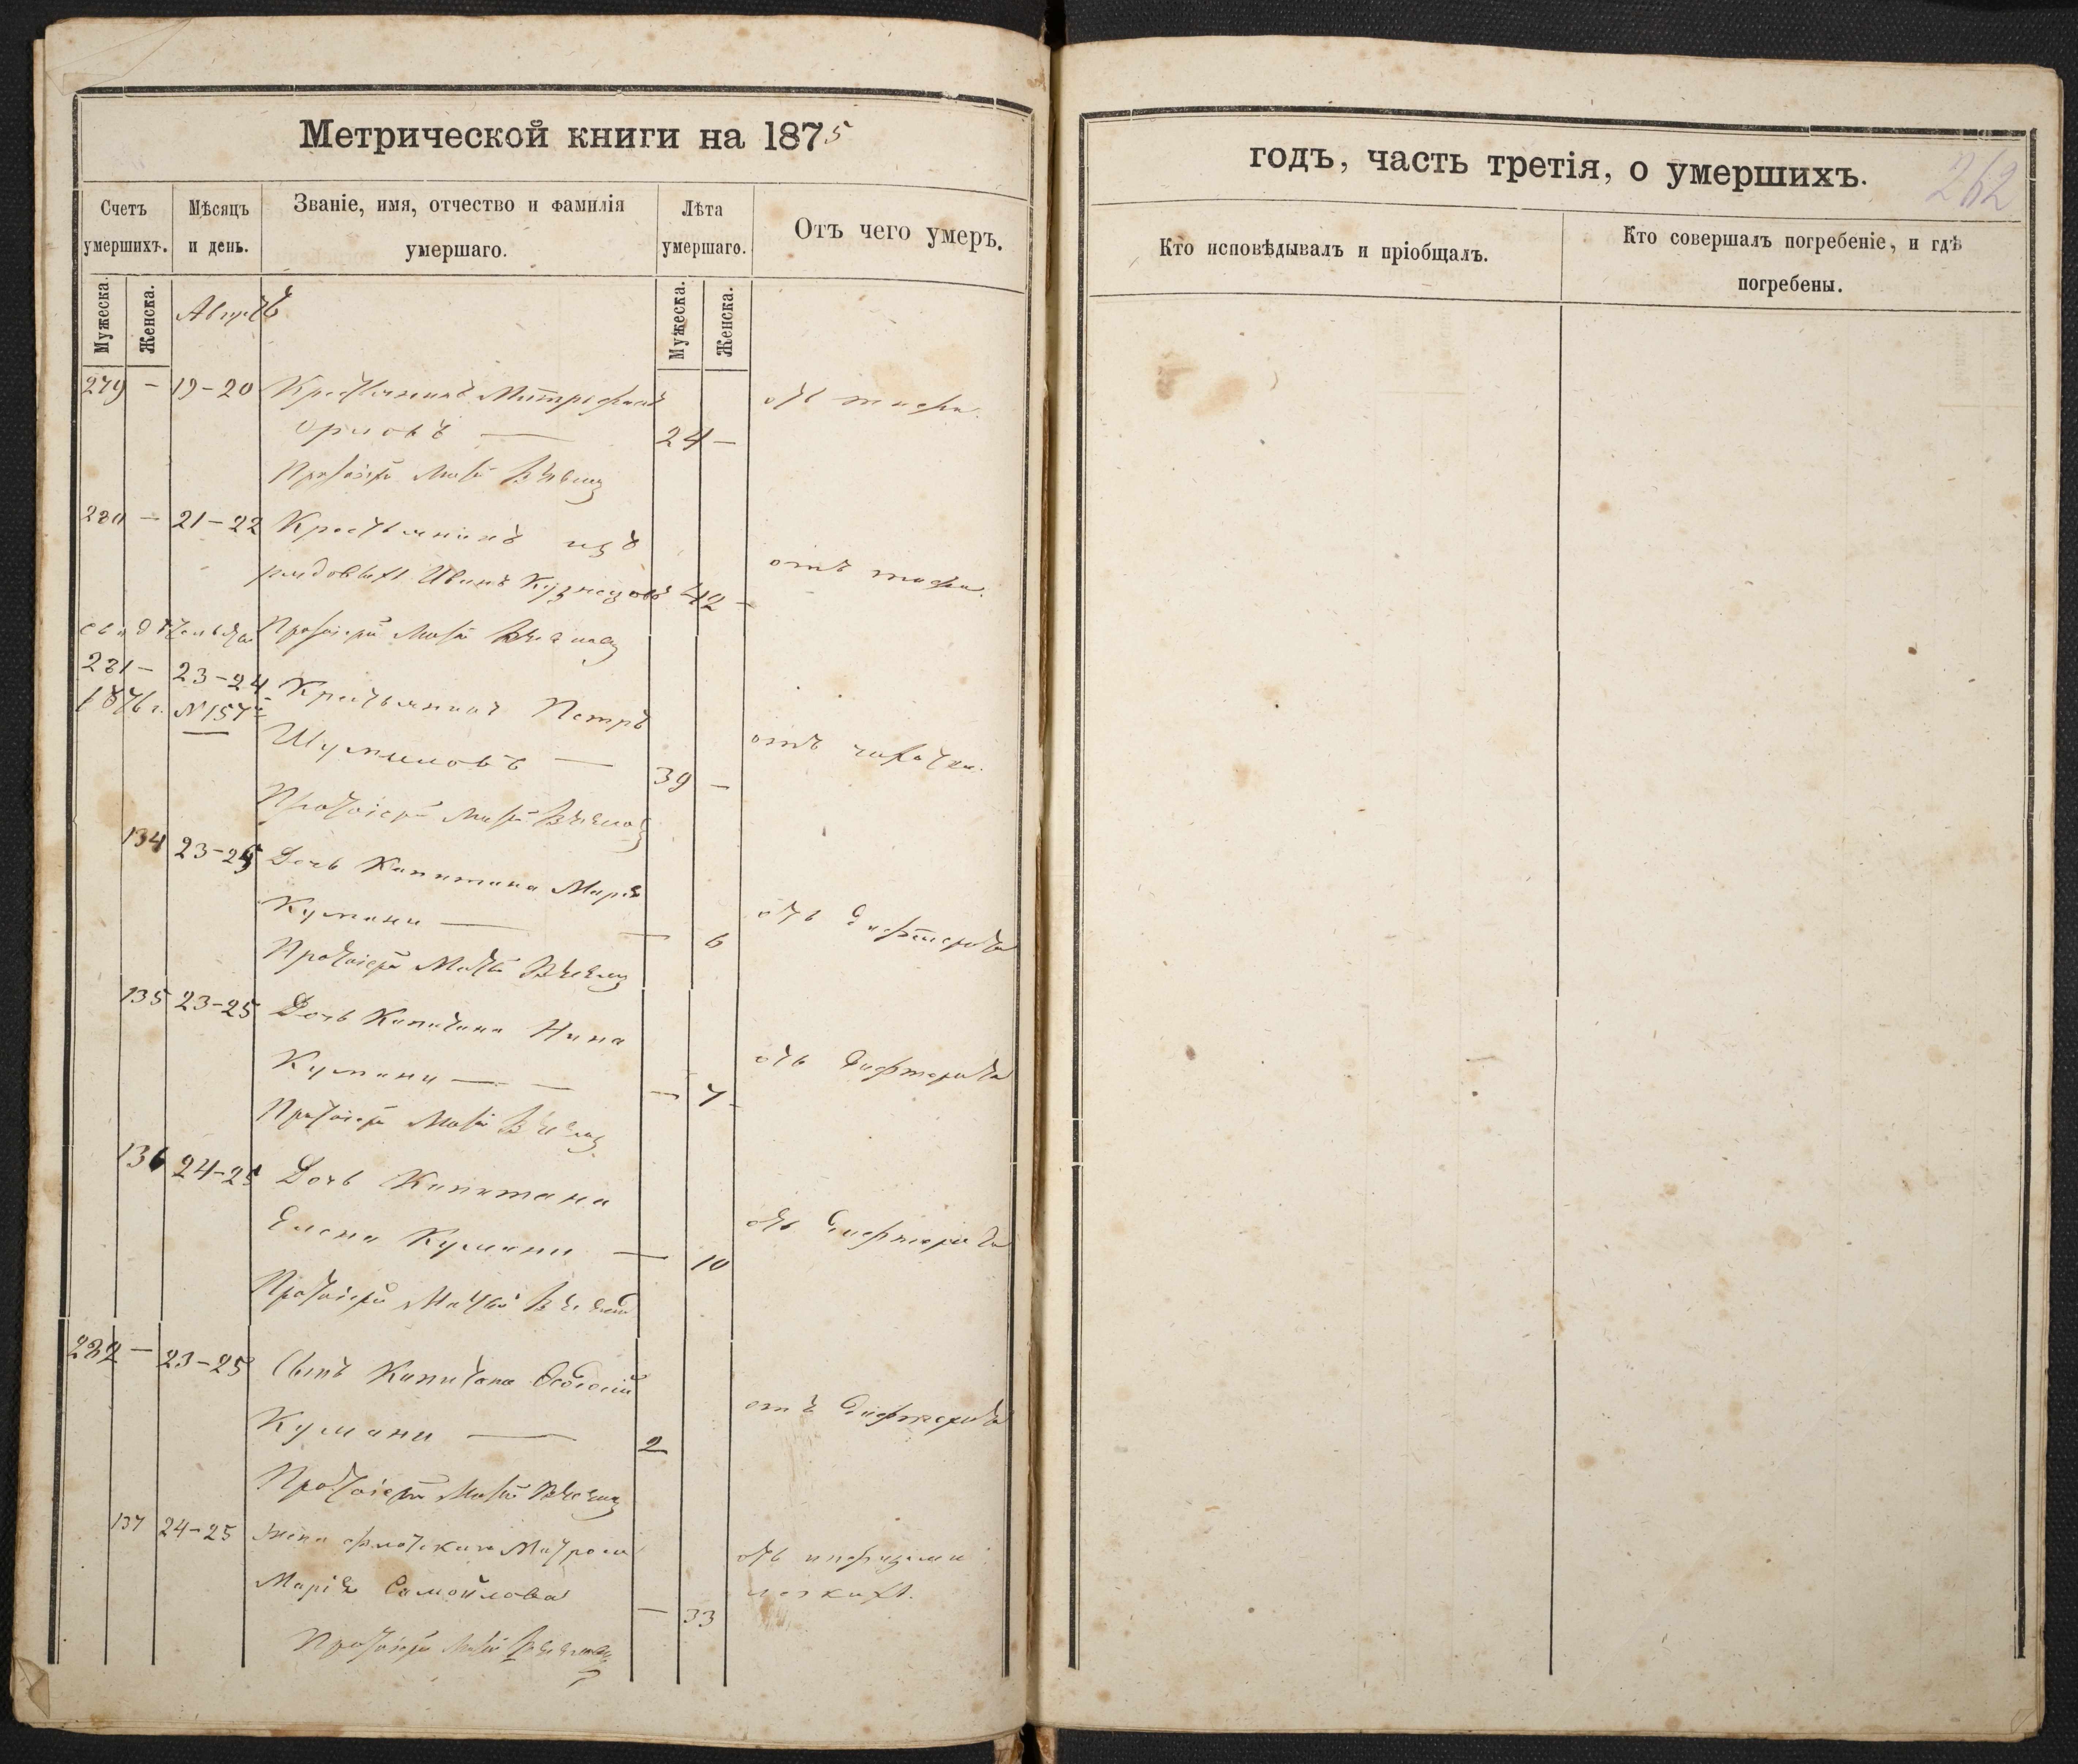 Метрической книги на 1875
Счетъ умершихъ.
Мѣсяцъ и день.
Званіе, имя, отчество и фамилія умершаго.
Лѣта умершаго.
Отъ чего умеръ.
Мужеска.
Женска.
Мужеска.
Женска.
279 – 19–20 Крестьянинъ Митрофанъ
Орловъ — 24 –
отъ тифа.
Протоіерей
280 – 21–22 Крестьянинъ изъ
рядовыхъ Иванъ Кузнецовъ 42 –
отъ тифа.
Протоіерей
281 – 23–24 Крестьянинъ Петръ
1876 г. №157
Шумиловъ — 39 –
отъ чахотки.
Протоіерей
134 23–25 Дочь Капитана Марія
Кумани — — 6
отъ дифтерита
Протоіерей
135 23–25 Дочь Капитана Нина
Кумани — — 7
отъ дифтерита
Протоіерей
136 24–25 Дочь Капитана
Елена Кумани — 10
отъ дифтерита
Протоіерей
282 – 23–25 Сынъ Капитана Ѳеодосій
Кумани — 2
отъ дифтерита
Протоіерей
137 24–25 жена флотскаго Матроса
Марія Самойлова — 33
отъ
легкихъ.
Протоіерей
годъ, часть третія, о умершихъ.
262
Кто исповѣдывалъ и пріобщалъ.
Кто совершалъ погребеніе, и гдѣ
погребены.